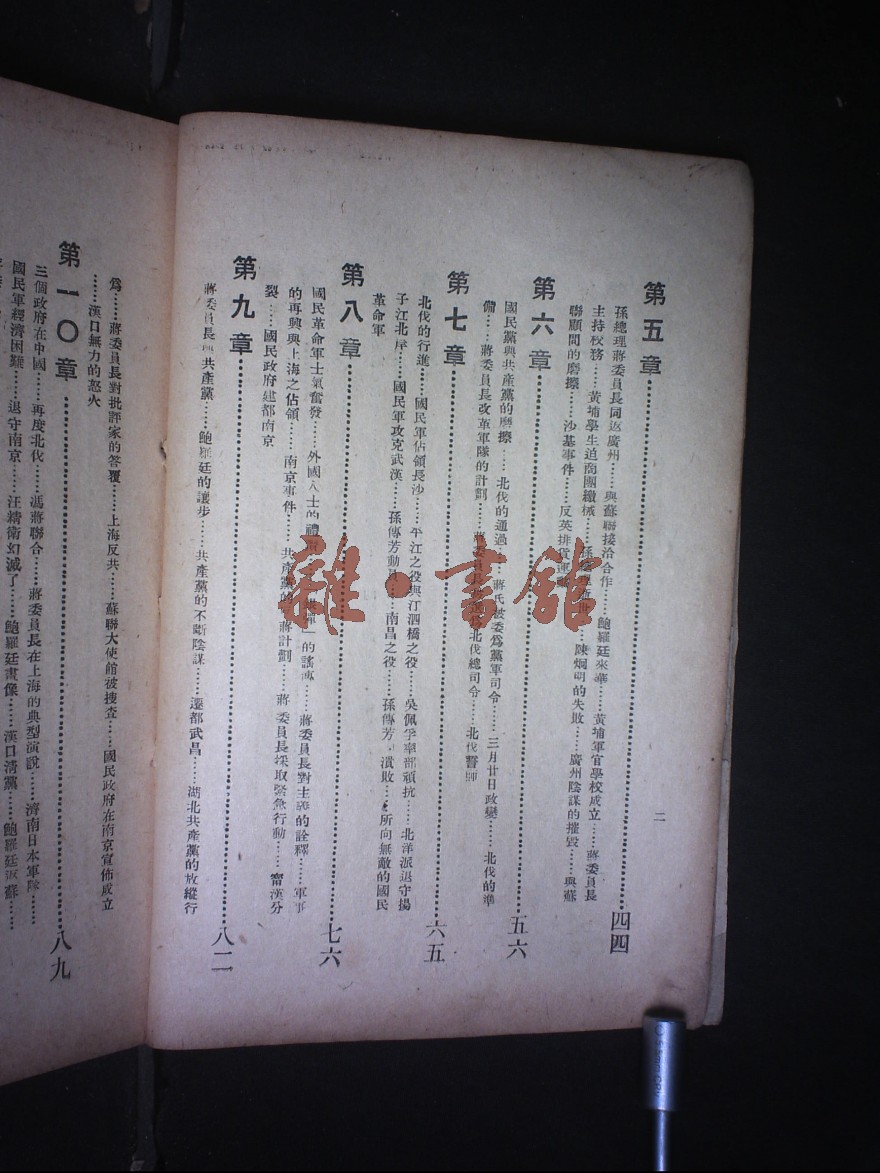 二
第五章……四四
孫總理蔣委員長同返廣州……與蘇聯接洽合作……鮑羅廷來華……黃埔軍官學校成立……蔣委員長
主持校務……黃埔學生迫商團繳械……孫總理逝世……陳烱明的失敗……廣州陰謀的摧毀……與蘇
聯顧問的磨擦……沙基事件……反英排貨運動
第六章……五六
國民黨與共產黨的磨擦……北伐的通過……蔣氏被委為黨軍司令……三月廿日政變……北伐的準
備……蔣委員長改革軍隊的計劃……蔣委員長 北伐總司令……北伐誓師
第七章……六五
北伐的行進……國民軍佔領長沙……平江之役與汀泗橋之役……吳佩孚率部頑抗……北洋派退守揚
子江北岸……國民軍攻克武漢……孫傳芳動員……南昌之役……孫傳芳 潰敗……所向無敵的國民
革命軍
第八章……七六
國民革命軍士氣奮發……外國人士的 」的謠傳……蔣委員長對主義的詮釋……軍事
的再興與上海之佔領……南京事件……共產黨的 蔣計劃……蔣委員長採取緊急行動……寗漢分
裂……國民政府建都南京
第九章……八二
蔣委員長 共產黨……鮑羅廷的讓步……共產黨的不斷陰謀……遷都武昌……湖北共產黨的放縱行
為……蔣委員長對批評家的答覆……上海反共……蘇聯大使館被搜查……國民政府在南京宣佈成立
……漢口無力的怒火
第一〇章……八九
三個政府在中國……再度北伐……馮蔣聯合……蔣委員長在上海的典型演說……濟南日本軍隊……
國民軍經濟困難……退守南京……汪精衛幻滅了……鮑羅廷畫像……漢口清黨……鮑羅廷返蘇……
雜·書館